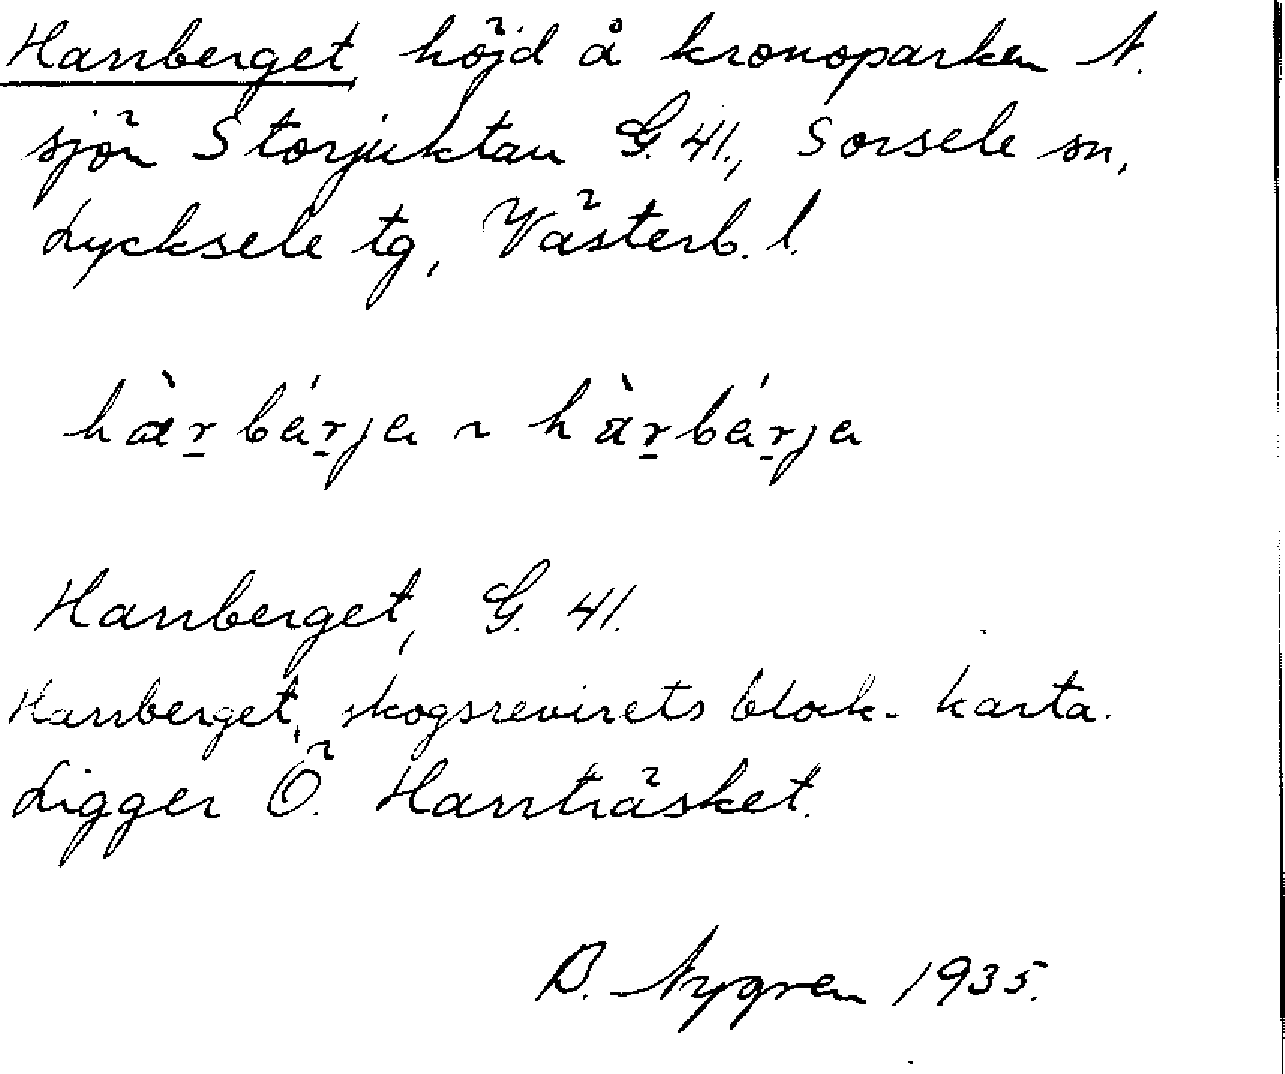 Harrberget höjd å kronoparken N.
sjön Storjuktan G. 41., Sorsele sn,
Lycksele tg, Västerb. l.
hær̲ bér̲ja ~ hàr̲bér̲ja
Harrberget, G. 41.
Harrberget, skogsrevirets block-karta.
Ligger Ö. Harrträsket.
B. Nygren 1935.